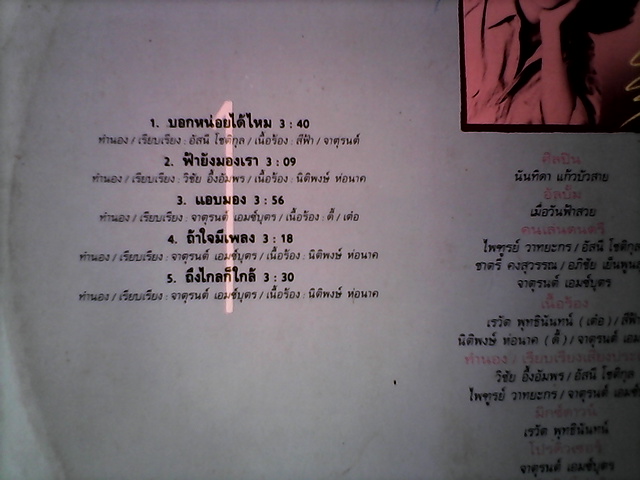 1
1. บอกหน่อยได้ไหม 3 : 40
ทำนอง / เรียบเรียง : อัสนี โชติกุล / เนื้อร้อง : สีฟ้า / จาตุรนต์
2. ฟ้ายังมองเรา 3 : 09
ทำนอง / เรียบเรียง : วิชัย อึ้งอัมพร / เนื้อร้อง : นิติพงษ์ ห่อนาค
3. แอบมอง 3 : 56
ทำนอง / เรียบเรียง : จาตุรนต์ เอมซ์บุตร / เนื้อร้อง : ดี้ / เต๋อ
4. ถ้าใจมีเพลง 3 : 18
ทำนอง / เรียบเรียง : จาตุรนต์ เอมซ์บุตร / เนื้อร้อง : นิติพงษ์ ห่อนาค
5. ถึงไกลก็ใกล้ 3 : 30
ทำนอง / เรียบเรียง : จาตุรนต์ เอมซ์บุตร / เนื้อร้อง : นิติพงษ์ ห่อนาค
ศิลปิน
นันทิดา แก้วบัวสาย
อัลบั้ม
เมื่อวันฟ้าสวย
คนเล่นดนตรี
ไพฑูรย์ วาทยะกร / อัสนี โชติกุล
ชาตรี คงสุวรรณ / อภิไชย เย็นพูน
จาตุรนต์ เอมซ์บุตร
เนื้อร้อง
เรวัต พุทธินันทน์ ( เต๋อ ) / สีฟ้า
นิติพงษ์ ห่อนาค ( ดี้ ) / จาตุรนต์ เอม
ทำนอง / เรียบเรียง
วิชัย อึ้งอัมพร / อัสนี โชติกุล
ไพฑูรย์ วาทยะกร / จาตุรนต์ เอม
มิกซ์ดาวน์
เรวัต พุทธินันทน์
โปรดิวเซอร์
จาตุรนต์ เอมซ์บุตร